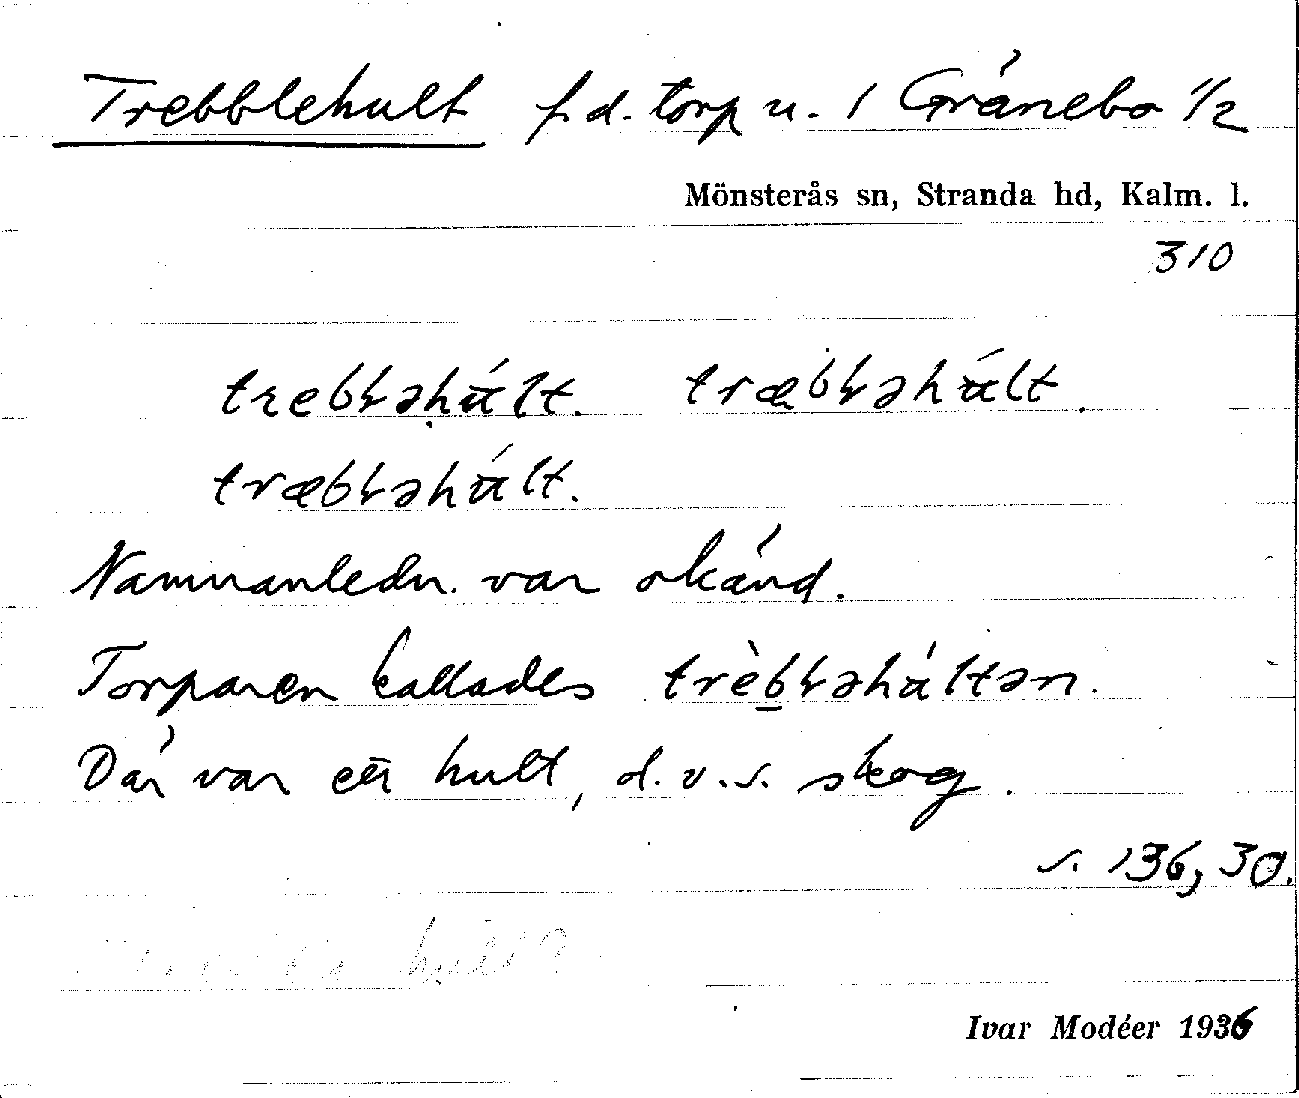 Trebblehult f.d. torp u. 1 Gránebo 1/2
Mönsterås sn, Stranda hd, Kalm. l.
310
trebbəhúlt. træbbəhúlt.
træbbəhúlt.
Namnanledn. var okänd.
Torparen kallades trèbbəhúltən.
Där var en hult, d.v.s. skog.
s. 136, 30.
hult?
Ivar Modéer 1936